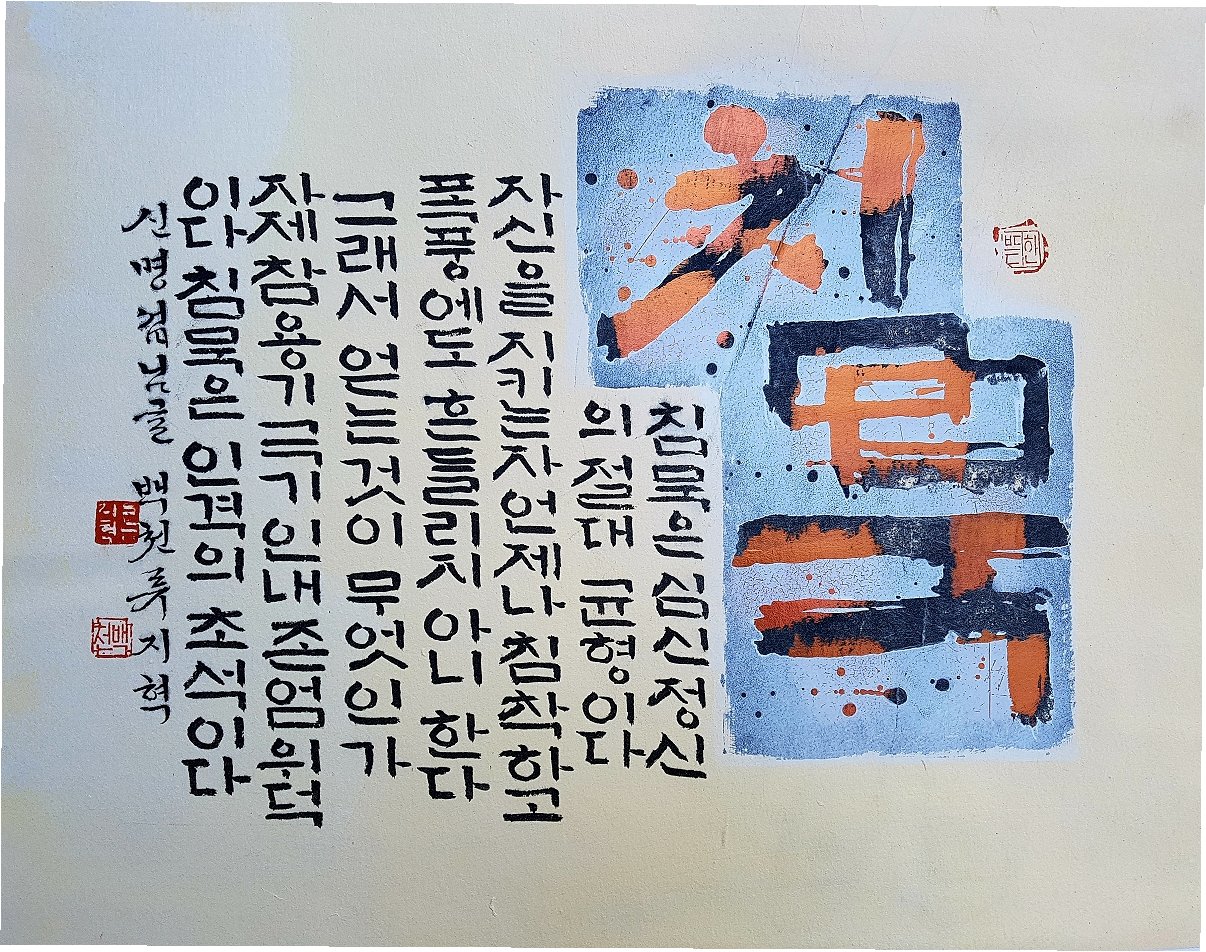 침묵
침묵은 심신정신
의 절대 균형이다
자신을 지키는자 언제나 침착하고
폭풍에도 흔들리지 아니 한다
그래서 얻는것이 무엇인가
자제 참용기 극기 인내 존엄 위덕
이다 침묵은 인격의 초석이다
신명섭님글 백천 류지혁
백천